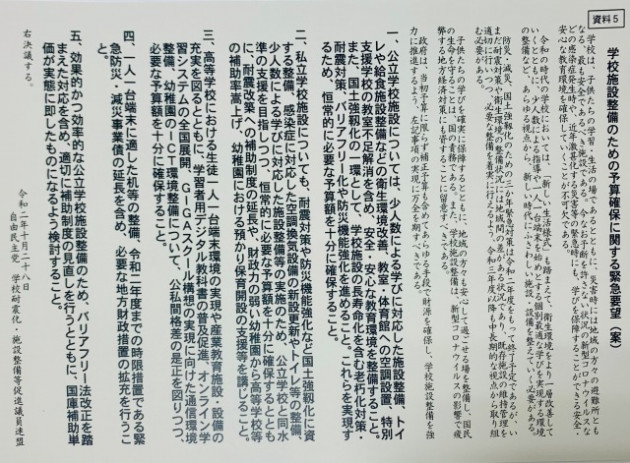 資料５
学校施設整備のための予算確保に関する緊急要望（案）
学校は、子供たちの学習・生活の場であるとともに、災害時には地域の方々の避難所とも
なる、最も安全であるべき施設である。今なお予断を許さない状況の新型コロナウイルスな
どの感染症発生時や、近年激甚化する災害等の緊急時に、学びを保障することができる安全・
安心な教育環境を確保していくことが不可欠である。
令和の時代の学校においては、「新しい生活様式」も踏まえて、衛生環境をより一層改善して
いくとともに、少人数による指導や一人一台端末を始めとする個別最適な学びを実現する環境
の整備など、あらゆる視点から、新しい時代にふさわしい施設、設備を整えていく必要がある。
防災・減災、国土強靱化のための三か年緊急対策は令和二年度をもって終了予定であるが、い
まだ耐震対策や衛生環境の整備状況には地域間の差がある状況であり、既存施設の維持管理を
適切に行いつつ、必要な整備を着実に行えるよう、令和三年度以降も中長期的な視点から取り組
む必要がある。
子供たちの学びを確実に保障するとともに、地域の方々も安心して過ごせる場を整備し、国民
の生命を守ることは、国の責務である。また、学校施設整備は、新型コロナウイルスの影響で疲
弊する地方経済対策にも資することに留意すべきである。
政府は、当初予算に限らず補正予算も含めてあらゆる手段で財源を確保し、学校施設整備を強
力に推進するよう、左記事項の実現に万全を期すべきである。
一、公立学校施設については、少人数による学びに対応した施設整備、トイ
レや給食施設整備などの衛生環境改善、教室・体育館への空調設置、特別
支援学校の教室不足解消を含め、安全・安心な教育環境を整備すること。
また、国土強靱化の一環として、学校施設の長寿命化を含む老朽化対策・
耐震対策、バリアフリー化や防災機能強化を進めること。これらを実現す
るため、恒常的に必要な予算額を十分に確保すること。
二、私立学校施設についても、耐震対策や防災機能強化など国土強靱化に資
する整備、感染症に対応した空調換気設備の新設更新やトイレ等の整備、
少人数による学びに対応した施設整備等の推進のため、公立学校と同水
準の支援を目指しつつ、恒常的に必要な予算額を十分に確保するととも
に、耐震改築への補助制度の延長や、財政力の弱い幼稚園から高等学校等
の補助率嵩上げ、幼稚園における預かり保育開設の支援等を講じること。
三、高等学校における生徒一人一台端末環境の実現や産業教育施設・設備の
充実を図るとともに、学習者用デジタル教科書の普及促進、オンライン学
習システムの全国展開、ＧＩＧＡスクール構想の実現に向けた通信環境
整備、幼稚園のＩＣＴ環境整備について、公私間格差の是正を図りつつ、
必要な予算額を十分に確保すること。
四、一人一台端末に適した机等の整備、令和二年度までの時限措置である緊
急防災・減災事業債の延長を含め、必要な地方財政措置の拡充を行うこ
と。
五、効果的かつ効率的な公立学校施設整備のため、バリアフリー法改正を踏
まえた対応を含め、適切に補助制度の見直しを行うとともに、国庫補助単
価が実態に即したものになるよう検討すること。
右決議する。
令和二年十月二十八日
自由民主党　学校耐震化・施設整備等促進議員連盟